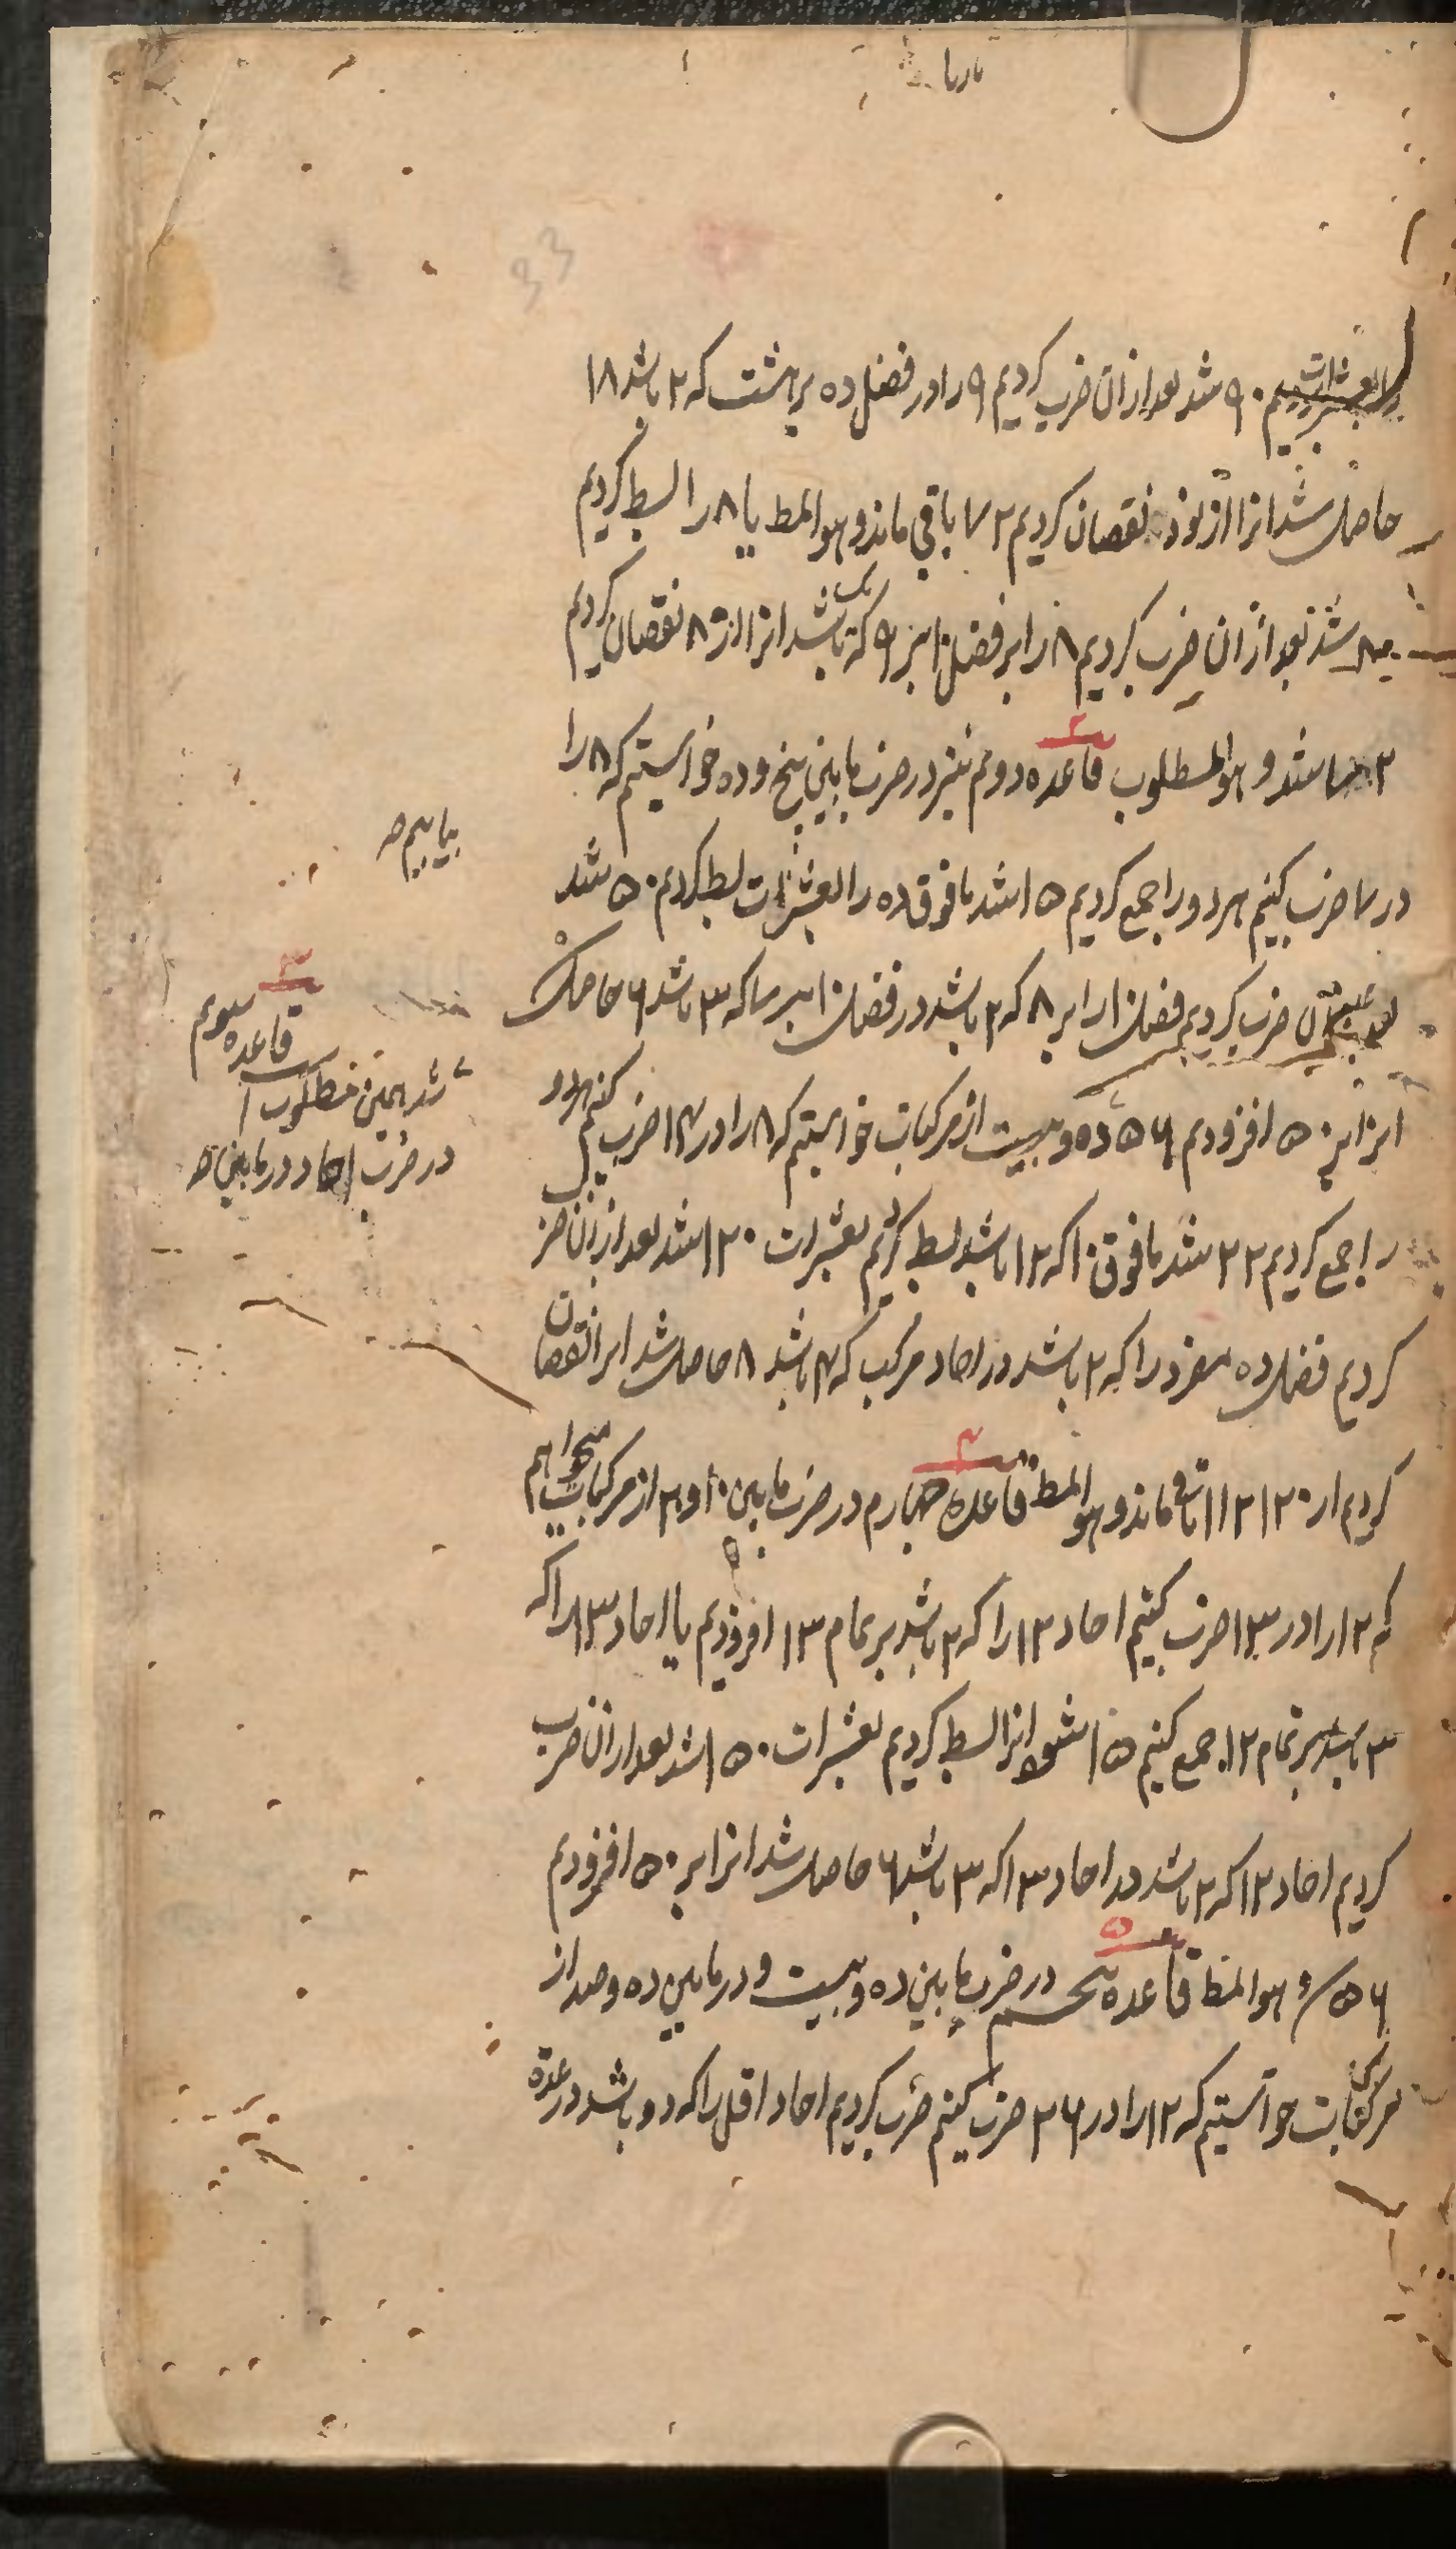 بعشرات ۹۰ شد بعد ازان ضرب کردیم ۹ را در فضل ده بر هشت که ۲ باشد ۱۸
حاصل شد انرا از نود نقصان کردیم ۷۲ باقی ماند و هو المط یا ۸ را بسط کردیم
۸۰ شد بعد ازان ضرب کردیم ۸ را بر فضل ۱۰ بر ۹ که یک باشد انرا از ۸۰ نقصان کردیم
۷۲ شد و هو المطلوب قاعده دوم نیز در ضرب ما بین پنج و ده خواستیم که ۸ را
در ۷ ضرب کنیم هر دو را جمع کردیم ۱۵ شد ما فوق ده را بعشرات بسط کردیم ۵۰ شد
ضرب کردیم فضل ۱۰ را بر ۸ که ۲ باشد در فضل ۱۰ بر ۷ که ۳ باشد ۶ حاصل
انرا بر ۵۰ افزودیم ۵۶ ده و بیست از مرکبات خواستیم که ۸ را در ۱۴ ضرب کنیم هر دو
را جمع کردیم ۲۲ شد ما فوق ۱۰ که ۱۲ باشد بسط کردیم بعشرات ۱۲۰ شد بعد ازان ضرب
کردیم فضل ده مفرد را که ۲ باشد در احاد مرکب که ۴ باشد ۸ حاصل شد انرا نقصان
کردیم از ۱۲۰ ۱۱۲ باقی ماند و هو المط قاعده چهارم در ضرب ما بین ۱۰ و ۲۰ از مرکبات میخواهم
که ۱۲ را در ۱۳ ضرب کنیم احاد ۱۲ را که ۲ باشد بر تمام ۱۳ افزودیم یا احاد ۱۳ را که
۳ باشد بر تمام ۱۲ جمع کنیم ۱۵ شود انرا بسط کردیم بعشرات ۱۵۰ شد بعد ازان ضرب
کردیم احاد ۱۲ که ۲ باشد در احاد ۱۳ که ۳ باشد ۶ حاصل شد انرا بر ۱۵۰ افزودیم
۱۵۶ هو المط قاعده پنجم در ضرب ما بین ده و بیست و در ما بین ده و صد از
مرکبات خواستیم که ۱۲ را در ۲۶ ضرب کنیم ضرب کردیم احاد اقل را که دو باشد در عدة
بیابیم
۳
قاعده سوم
شد همین مطلوب
در ضرب احاد در ما بین
۲
۴
۵
33